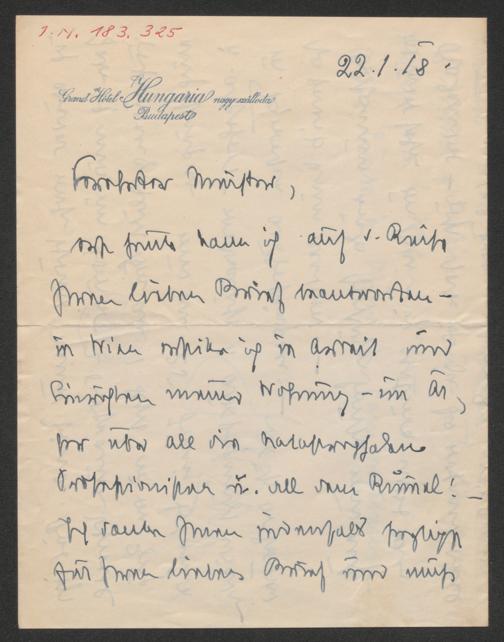 I.N. 183.325
22.1.18.
Grand Hôtel Hungaria nagy szálloda
Budapest
Verehrter Meister,
erst heute kann ich auf d. Reise
Ihren lieben Brief beantworten –
in Wien ersticke ich in Arbeit und
Einrichten meiner Wohnung – im Är-
ger über all die
u. all dem Rummel! –
Ich danke Ihnen jedenfalls herzlich
für Ihren lieben Brief und muß